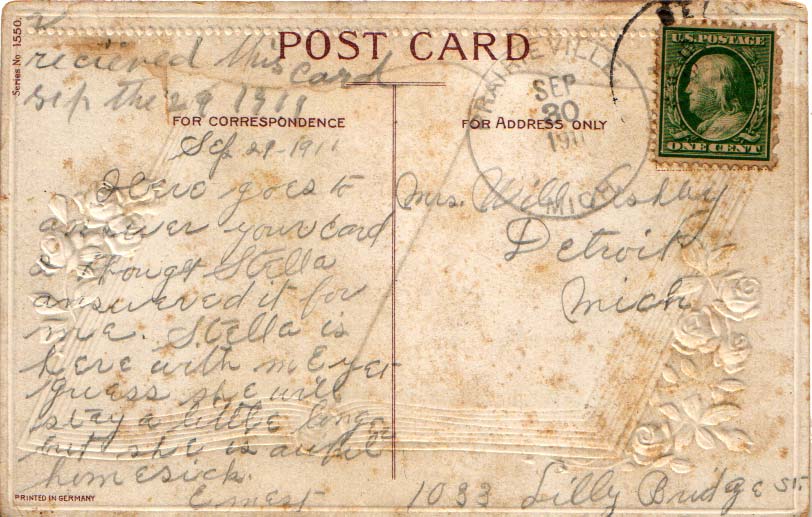 Series No 1550.
I
recieved this card
sep the 29 1911
POST CARD
FOR CORRESPONDENCE
FOR ADDRESS ONLY
SEP
30
191
MICH
U.S. POSTAGE
ONE CENT
Sep 29-1911
Here goes to
answer your card
I thought Stella
answered it for
me. Stella is
here with me yet
guess she will
stay a little longer
but she is awful
homesick.
Ernest
Mrs. Will Ashby
Detroit
Mich
1033 Lilly Bridge St.
PRINTED IN GERMANY